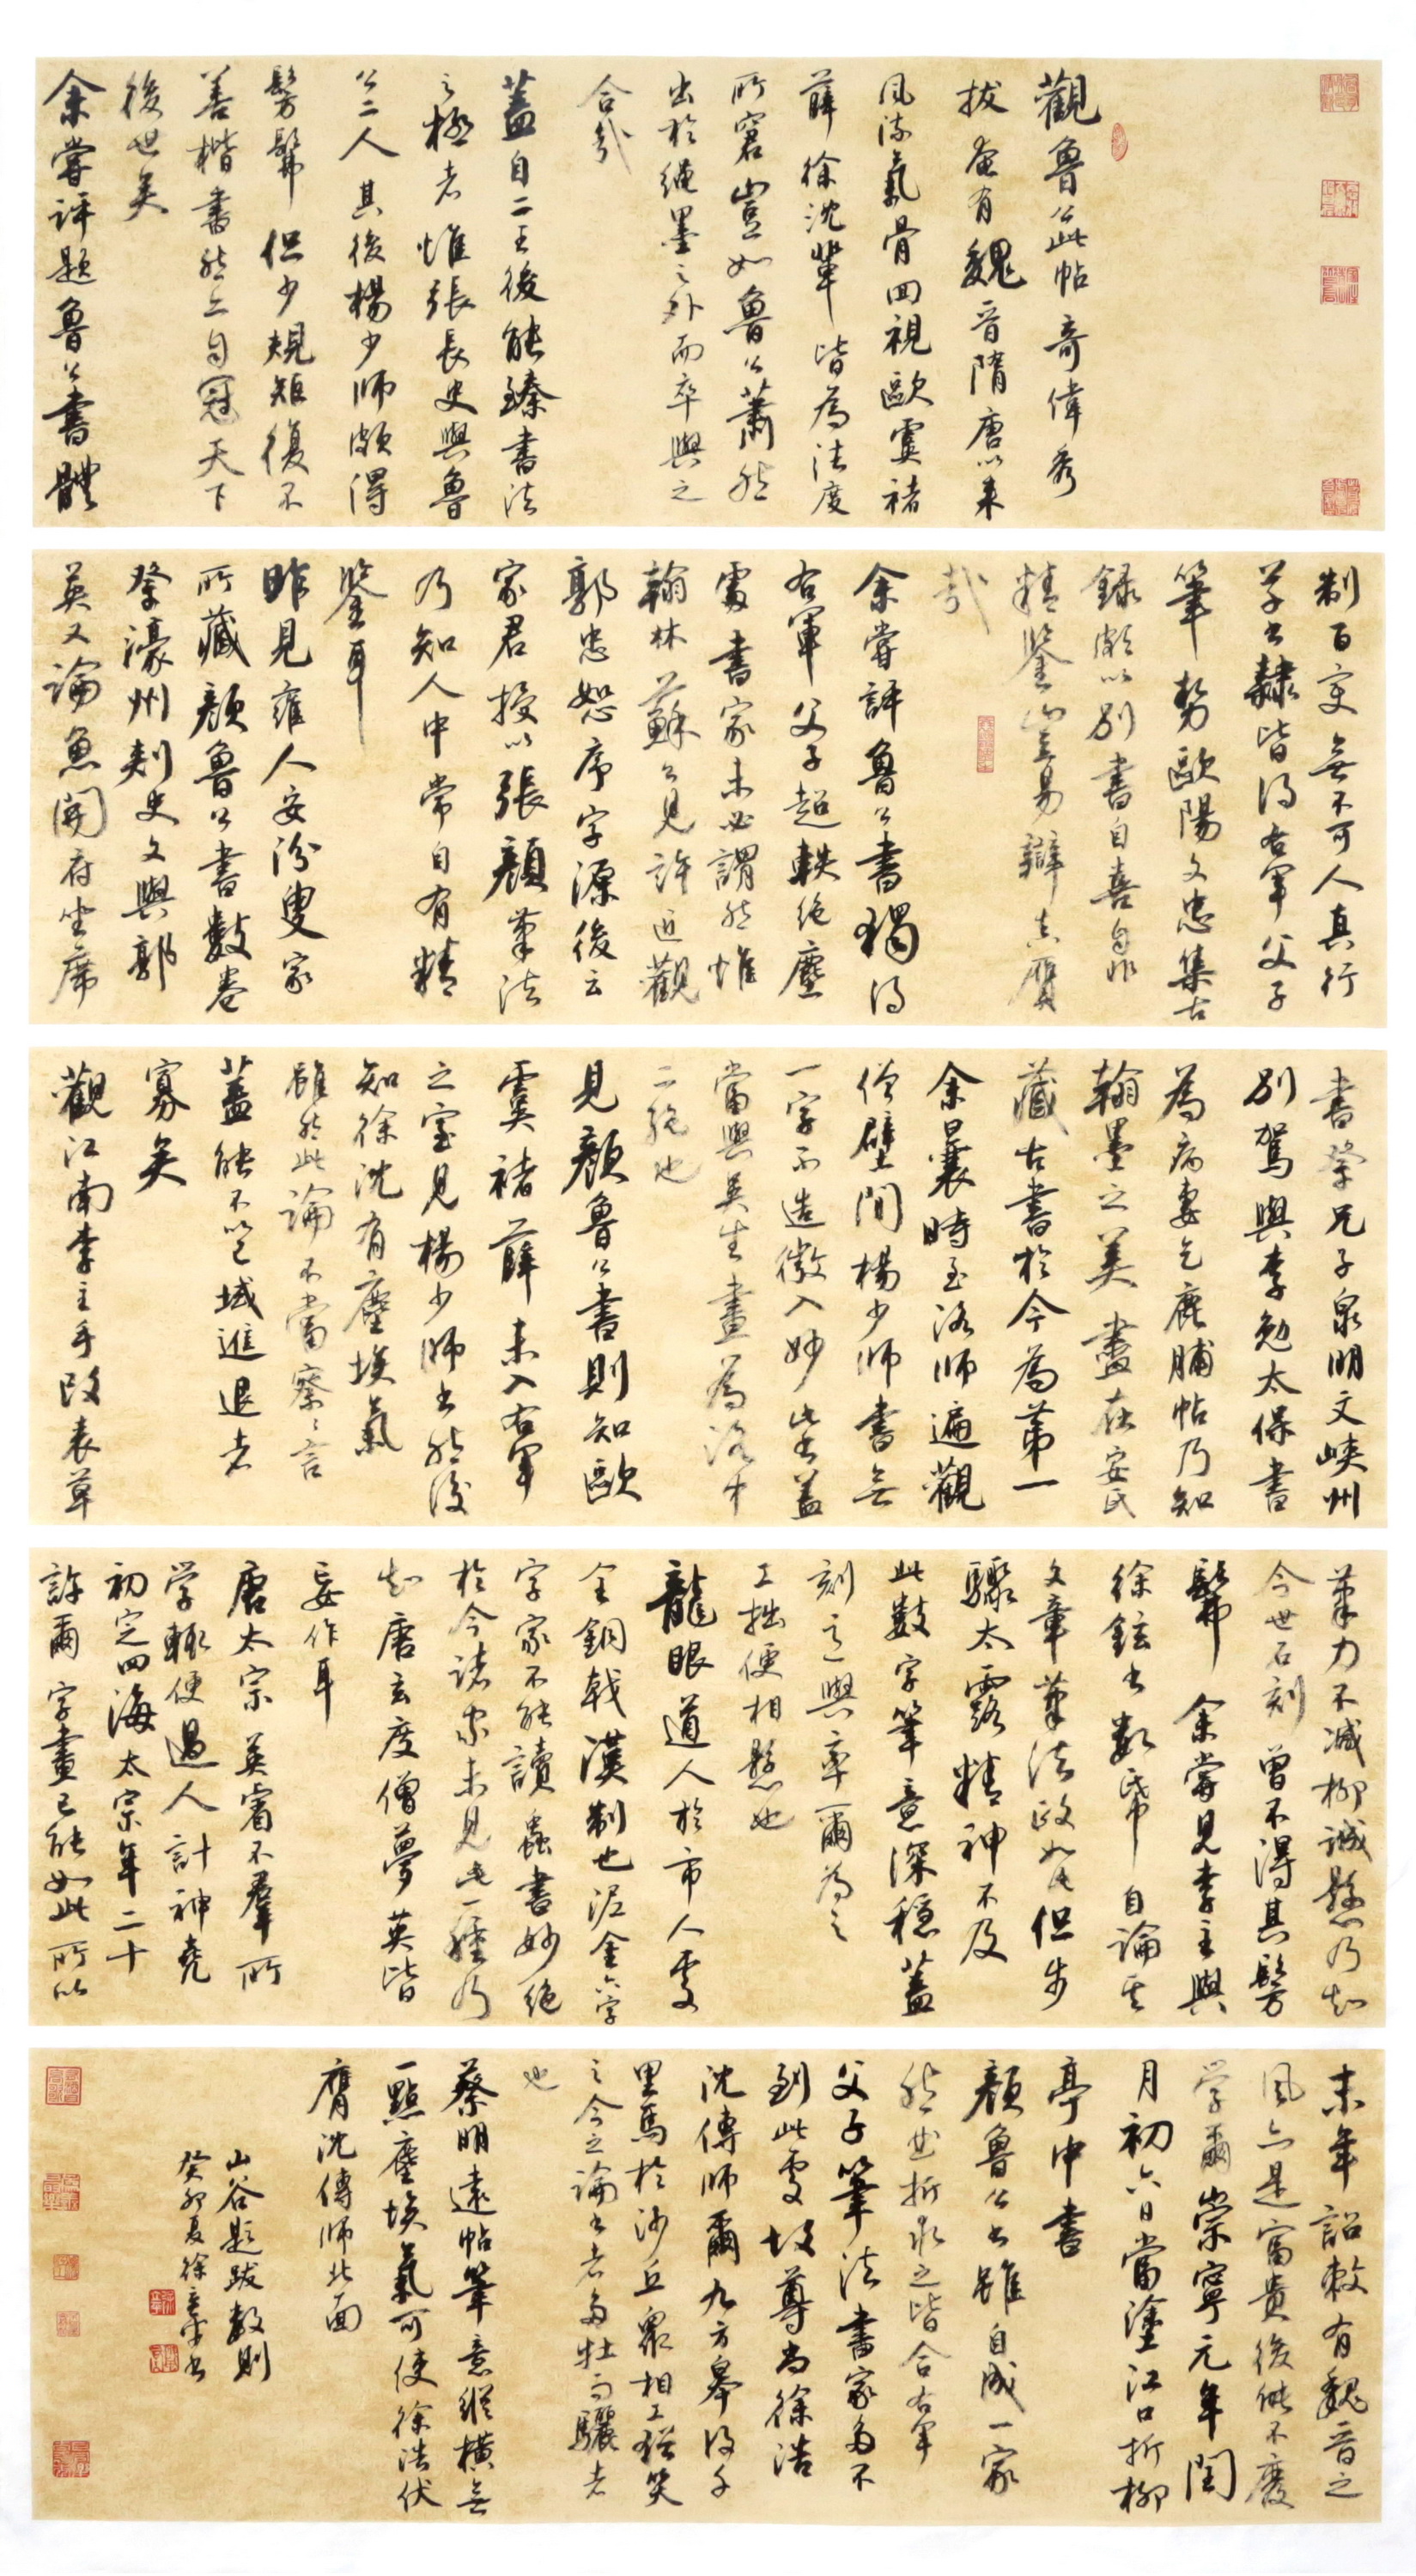 觀魯公此帖奇偉秀
拔奄有魏晉隋唐以來
風流氣骨回視歐虞褚
薛徐沈輩皆為法度
所窘豈如魯公蕭然
出於繩墨之外而卒與之
合哉
蓋自二王後能臻書法
之極者惟張長史與魯
公二人其後楊少師頗得
髣髴但少規矩復不
善楷書然亦自冠天下
後世矣
余嘗評題魯公書體
制百變無不可人真行
草書隸皆得右軍父子
筆勢歐陽文忠集古
錄頗以別書自喜自非
精鑒豈易辯真贗
哉
余嘗評魯公書獨得
右軍父子超軼絕塵
處書家未必謂然惟
翰林蘇公見許近觀
郭忠恕序字源後云
家君授以張顏筆法
乃知人中常自有精
鑒耳
昨見雍人安汾叟家
所藏顏魯公書數卷
祭濠州刺史文與郭
英乂論魚開府坐席
書祭兄子泉明文峽州
別駕與李勉太保書
為病妻乞鹿脯帖乃知
翰墨之美盡在安氏
藏古書於今為第一
余曩時至洛師遍觀
僧壁間楊少師書無
一字不造微入妙此書蓋
當與吳生畫為洛中
二絕也
見顏魯公書則知歐
虞褚薛未入右軍
之室見楊少師書然後
知徐沈有塵埃氣
雖然此論不當察察言
蓋能不以己域進退者
寡矣
觀江南李主手改表草
筆力不減柳誠懸乃知
今世石刻曾不得其髣
髴余嘗見李主與
徐鉉書數紙自論其
文章筆法政如此但步
驟太露精神不及
此數字筆意深穩蓋
刻意與率爾為之
工拙便相懸也
龍眼道人於市人處
全銅戟漢制也泥金六字
字家不能讀蟲書妙絕
於今諸家未見此一種乃
知唐玄度僧夢英皆
妄作耳
唐太宗英睿不羣所
學輒便過人計神堯
初定四海太宗年二十
許爾字畫已能如此所以
末年詔敕有魏晉之
風亦是富貴後能不廢
學爾崇寧元年閏
月初六日當塗江口折柳
亭中書
顏魯公書雖自成一家
然曲折求之皆合右軍
父子筆法書家多不
到此處故尊尚徐浩
沈傳師爾九方皋得千
里馬於沙丘眾相工猶笑
之今之論書者多牡而驪者
也
蔡明遠帖筆意縱橫無
一點塵埃氣可使徐浩伏
膺沈傳師北面
山谷題跋數則
癸卯夏徐書